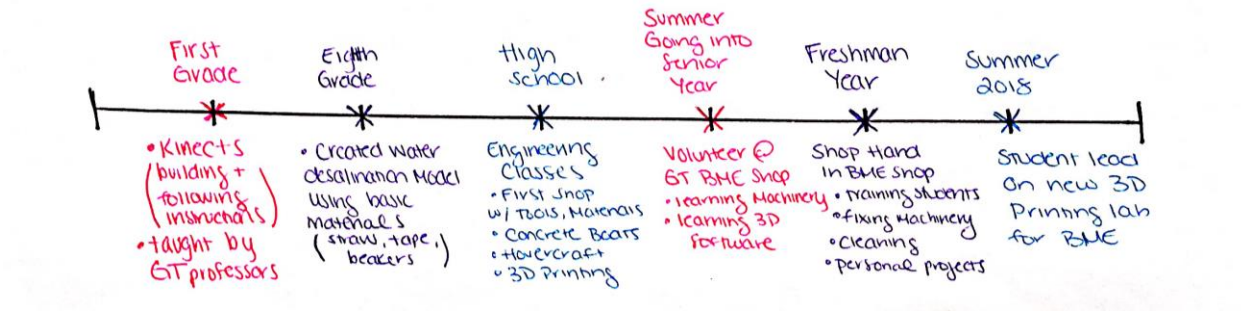 First
Grade
• Kinects
(building +
following
instructions)
• taught by
GT professors
Eighth
Grade
• Created water
desalination Model
using basic
materials
(straw, tape,
beakers)
High
School
Engineering
Classes
• First shop
w/ Tools, Materials
• Concrete Boats
• Hovercraft
• 3D Printing
Summer
Going into
Senior
Year
Volunteer @
GT BME Shop
• learning Machinery
• learning 3D
software
Freshman
Year
Shop Hand
in BME Shop
• training students
• fixing Machinery
• cleaning
• personal projects
Summer
2018
Student lead
on new 3D
Printing lab
for BME